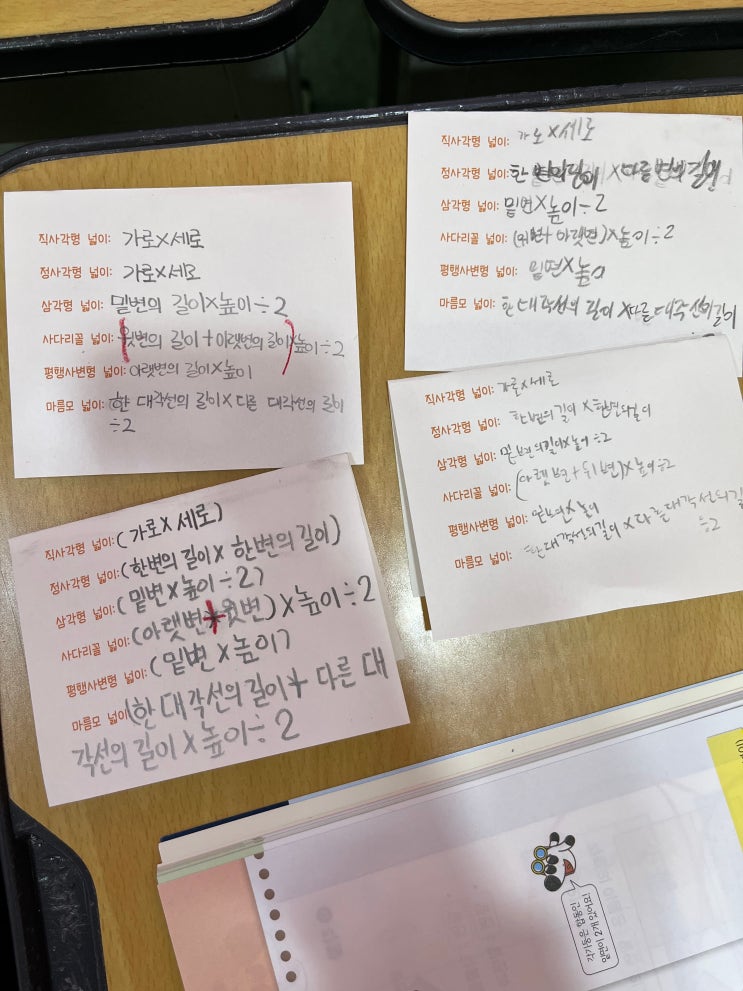 직사각형 넓이: 가로×세로
정사각형 넓이: 가로×세로
삼각형 넓이: 밑변의 길이×높이÷2
사다리꼴 넓이: (윗변의 길이+아랫변의 길이)×높이÷2
평행사변형 넓이: 아랫변의 길이×높이
마름모 넓이: 한 대각선의 길이×다른 대각선의 길이
÷2
직사각형 넓이: 가로×세로
정사각형 넓이: 한 다른변의 길이
삼각형 넓이: 밑변×높이÷2
사다리꼴 넓이: (위변+아랫변)×높이÷2
평행사변형 넓이: 밑면×높이
마름모 넓이: 한 대각선의 길이×다른 대각선의 길이
직사각형 넓이: (가로×세로)
정사각형 넓이: (한변의 길이×한변의 길이)
삼각형 넓이: (밑변×높이÷2)
사다리꼴 넓이: (아랫변+윗변)×높이÷2
평행사변형 넓이: (밑변×높이)
마름모 넓이: (한 대각선의 길이+다른 대
각선의 길이×높이÷2
직사각형 넓이: 가로×세로
정사각형 넓이: 한변의길이×한변의길이
삼각형 넓이: 밑변의길이×높이÷2
사다리꼴 넓이: (아랫변+위변)×높이÷2
평행사변형 넓이: ×높이
마름모 넓이: 한대각선의길이×다른대각선의길
÷2
각기둥은 합동인
밑면이 2개 있어요!